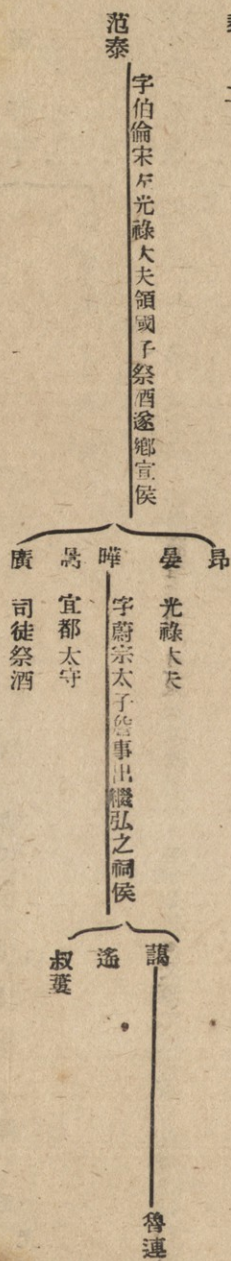 范泰
字伯倫宋左光祿大夫領國子祭酒遂鄉宣侯
昂
晏 光祿大夫
曄
字蔚宗太子詹事出繼弘之祠侯
暠 宜都太守
廣 司徒祭酒
藹
遙
叔蔞
魯連